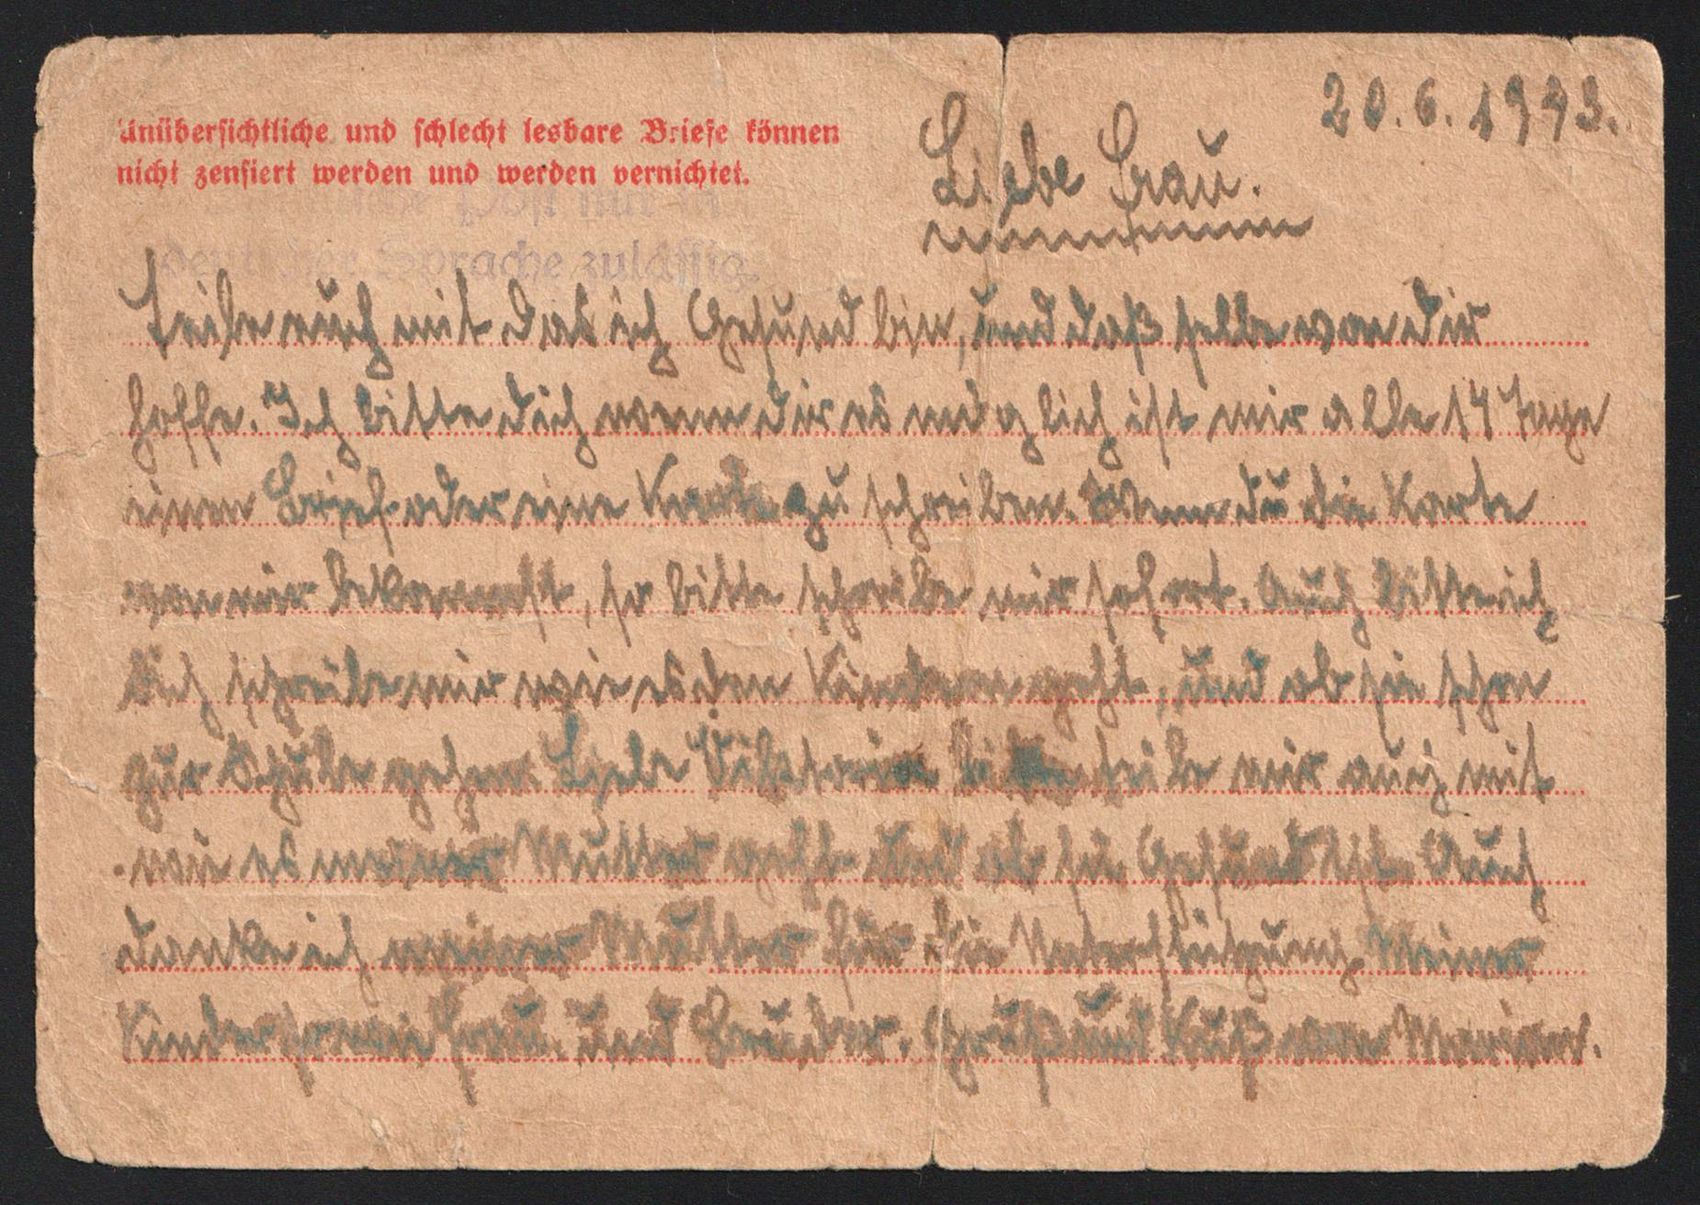 20.6.1943.
Unübersichtliche und schlecht lesbare Briefe können
nicht zensiert werden und werden vernichtet.
Liebe Frau.
Post nur in
deutscher Sprache zulässig.
Teile euch mit das ich Gesund bin, und daß selbe von dir
hoffe. Ich bitte dich wenn dir es möglich ist mir alle 14 Tage
einen Brief oder eine Karte zu schreiben. Wenn du die Karte
von mir bekommst, so bitte schreibe mir sofort. Auch bitte ich
dich schreibe mir wie es den Kindern geht, und ob sie schon
zur Schule gehen. Liebe Viktoria teile mir auch mit
wie es meiner Mutter geht und ob sie Gesund ist. Auch
danke ich meiner Mutter für die Unterstützung Meiner
Kinder sowie Frau und Bruder. Gruß und Kuß von Marian.